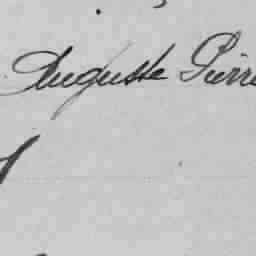 Auguste Pierre